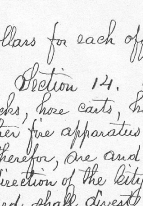 llars for each off
Section 14.
cks, hose carts, h
her fire apparatus
therefor, are and
direction of the City
ed shall divest